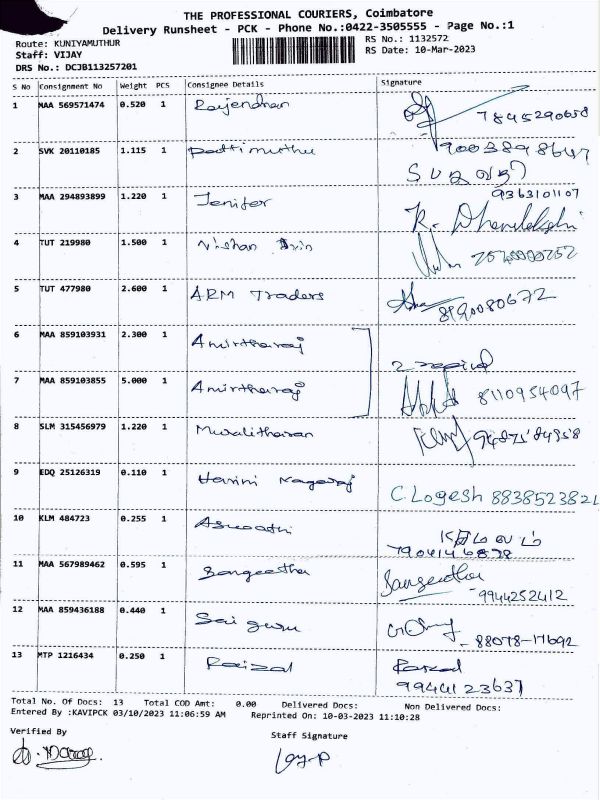 THE PROFESSIONAL COURIERS, Coimbatore
Delivery Runsheet - PCK - Phone No.:0422-3505555 - Page No.:1
Route: KUNIYAMUTHUR RS No.: 1132572
Staff: VIJAY RS Date: 10-Mar-2023
DRS No.: DCJB113257201
S No Consignment No Weight PCS Consignee Details Signature
1 MAA 569571474 0.520 1 Rajendran
2 SVK 20110185 1.115 1
3 MAA 294893899 1.220 1 Jenifer 9363101107
K. Dhandapani
4 TUT 219980 1.500 1
5 TUT 477980 2.600 1 ARM Traders 8190080672
6 MAA 859103931 2.300 1 Amirtharaj
7 MAA 859103855 5.000 1 Amirtharaj 8110954097
8 SLM 315456979 1.220 1 Muralitharan
9 EDQ 25126319 0.110 1 Harini Nagaraj C. Logesh 8838523821
10 KLM 484723 0.255 1 Aswathi
11 MAA 567989462 0.595 1 Sangeetha Sangeetha
9944252412
12 MAA 859436188 0.440 1 Sai guru 88078-17692
13 MTP 1216434 0.250 1 Faizal
9944123637
Total No. Of Docs: 13 Total COD Amt: 0.00 Delivered Docs: Non Delivered Docs:
Entered By :KAVIPCK 03/10/2023 11:06:59 AM Reprinted On: 10-03-2023 11:10:28
Verified By Staff Signature